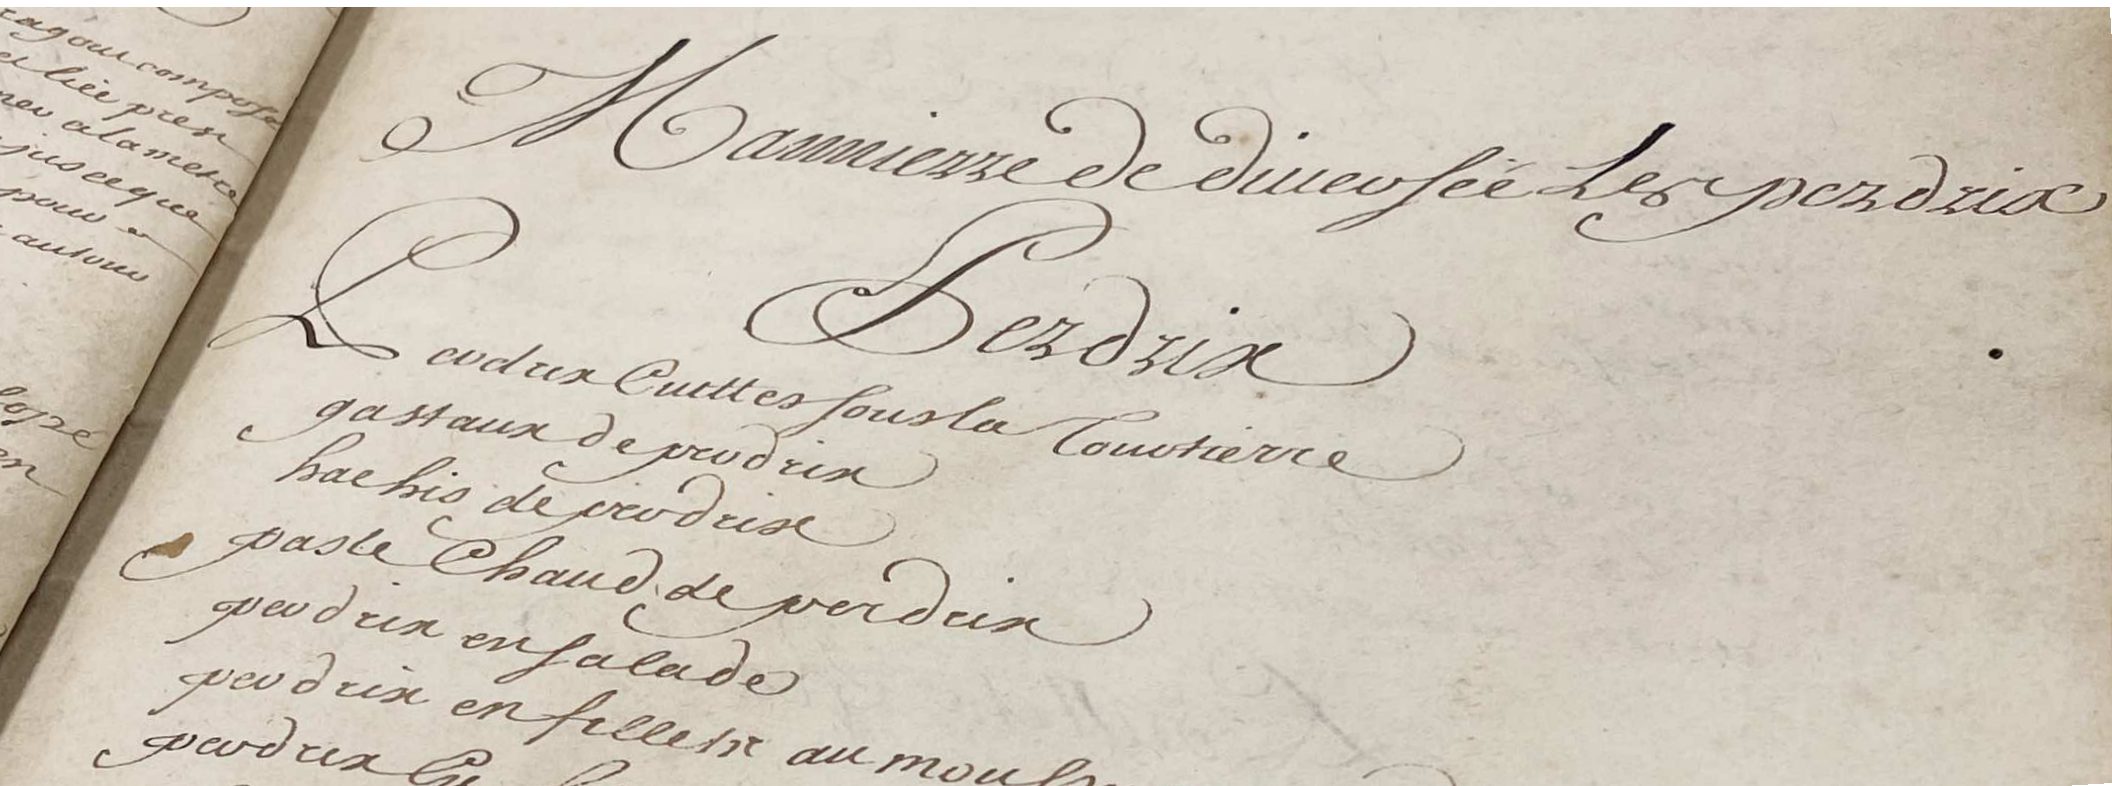 ragou compose
et liée pres
neu a la mettre
jus ceque
pour
autour
en
Mannierre de diversée Les perdrix
Perdrix
Perdrix Cuittes sous la Tourtierre
gastaux de perdrix
hachis de perdrix
paste Chaud de perdrix
perdrix en salade
perdrix en fillets au mouss
perdrix